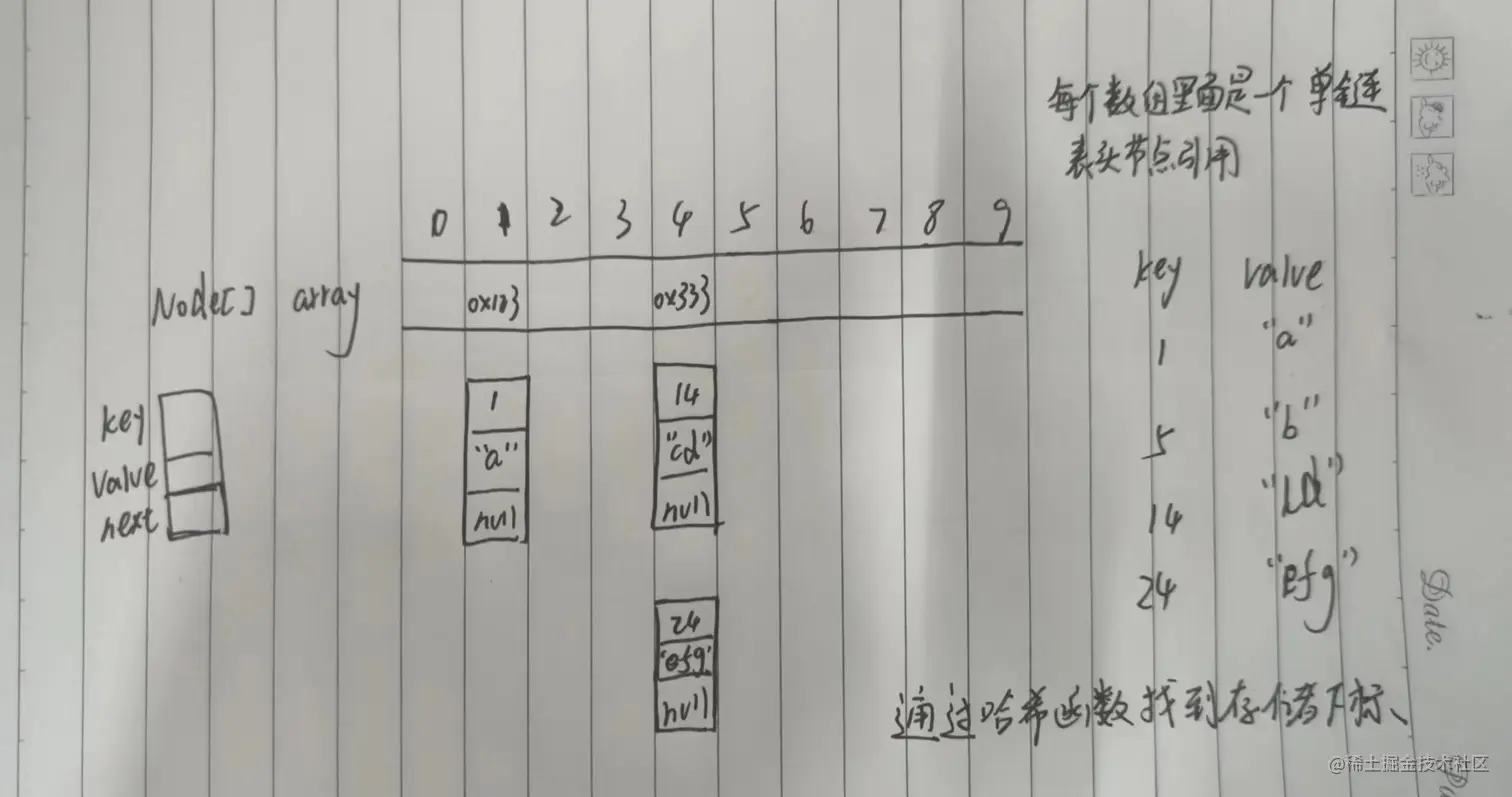 每个数组里面是一个单链
表头节点引用
0 1 2 3 4 5 6 7 8 9
Node[] array
0x123 0x333
key
value
next
1
"a"
null
14
"cd"
null
24
"efg"
null
key value
1 "a"
5 "b"
14 "cd"
24 "efg"
通过哈希函数找到存储下标、
Date.
@稀土掘金技术社区